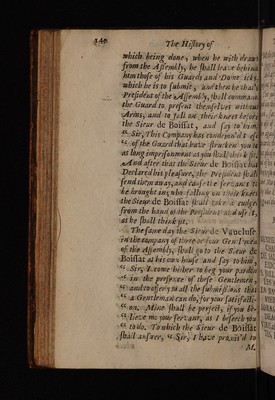 240
The History of
which being done, when he withdraws
from the Assembly, he shall leave behind
him those of his Guards and Domesticks
which he is to submit, and then he that's
President of the Assembly, shall command
the Guard to present themselves without
Arms, and to fall on their knees before
the Sieur de Boissat, and say to him,
“ Sir, This Company has condemn'd
“ of the Guard that have strucken you to
as long imprisonment as you shall think fit.
And after that the Sieur de Boissat has
Declared his pleasure, the President shall
send them away, and cause the servants to
be brought in, who falling on their knees
the Sieur de Boissat shall take a cudgel
from the hand of the President and use it,
as he shall think fit.
The same day the Sieur de Vaucluse
in the company of three or four Gentlemen
of the Assembly, shall go to the Sieur de
Boissat at his own house and say to him,
“ Sir, I come hither to beg your pardon
“ in the presence of these Gentlemen,
“ and to offer you all the submissions that
“ a Gentleman can do, for your satisfacti-
“ on. Mine shall be perfect, if you be-
“ lieve me your servant, as I beseech you
“ to do. To which the Sieur de Boissat
shall answer, “ Sir, I have promis'd to
M.